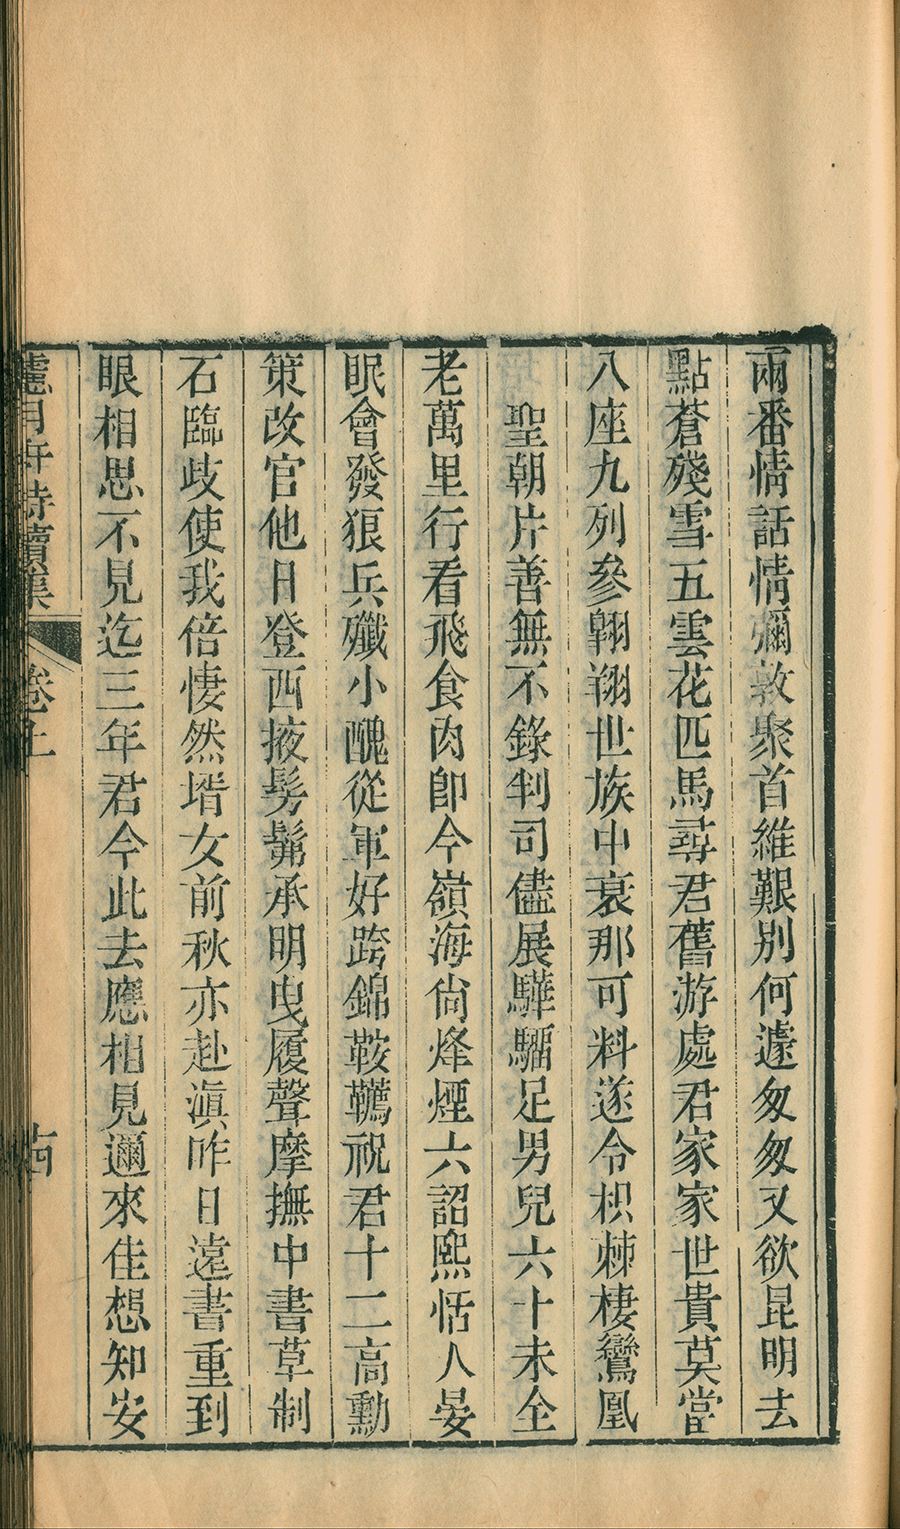 兩番情話情彌敦聚首維艱別何遽匆匆又欲昆明去
點蒼殘雪五雲花匹馬尋君舊游處君家家世貴莫當
八座九列參翺翔世族中衰那可料遂令枳棘棲鸞凰
聖朝片善無不錄判司儘展驊騮足男兒六十未全
老萬里行看飛食肉卽今嶺海尙烽煙六詔熙恬人晏
眠會發狼兵殲小醜從軍好跨錦鞍韉祝君十二高勳
策改官他日登西掖髣髴承明曳履聲摩撫中書草制
石臨歧使我倍悽然壻女前秋亦赴滇昨日遠書重到
眼相思不見迄三年君今此去應相見邇來佳想知安
月軒詩續集 卷上